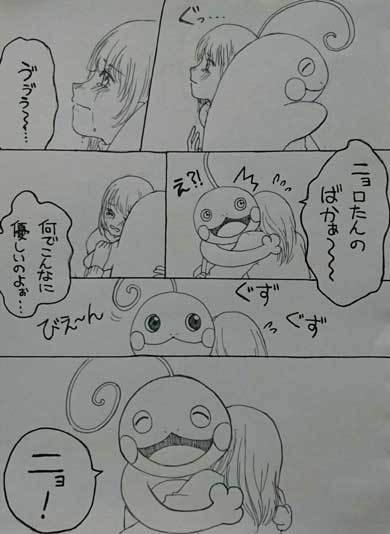 ぐっ…
ゔゔぅ〜…
ニョロたんの
ばかぁ〜〜
え?!
何でこんなに
優しいのよぉ…
ぐず
ぐず
びえ〜ん
ニョ!